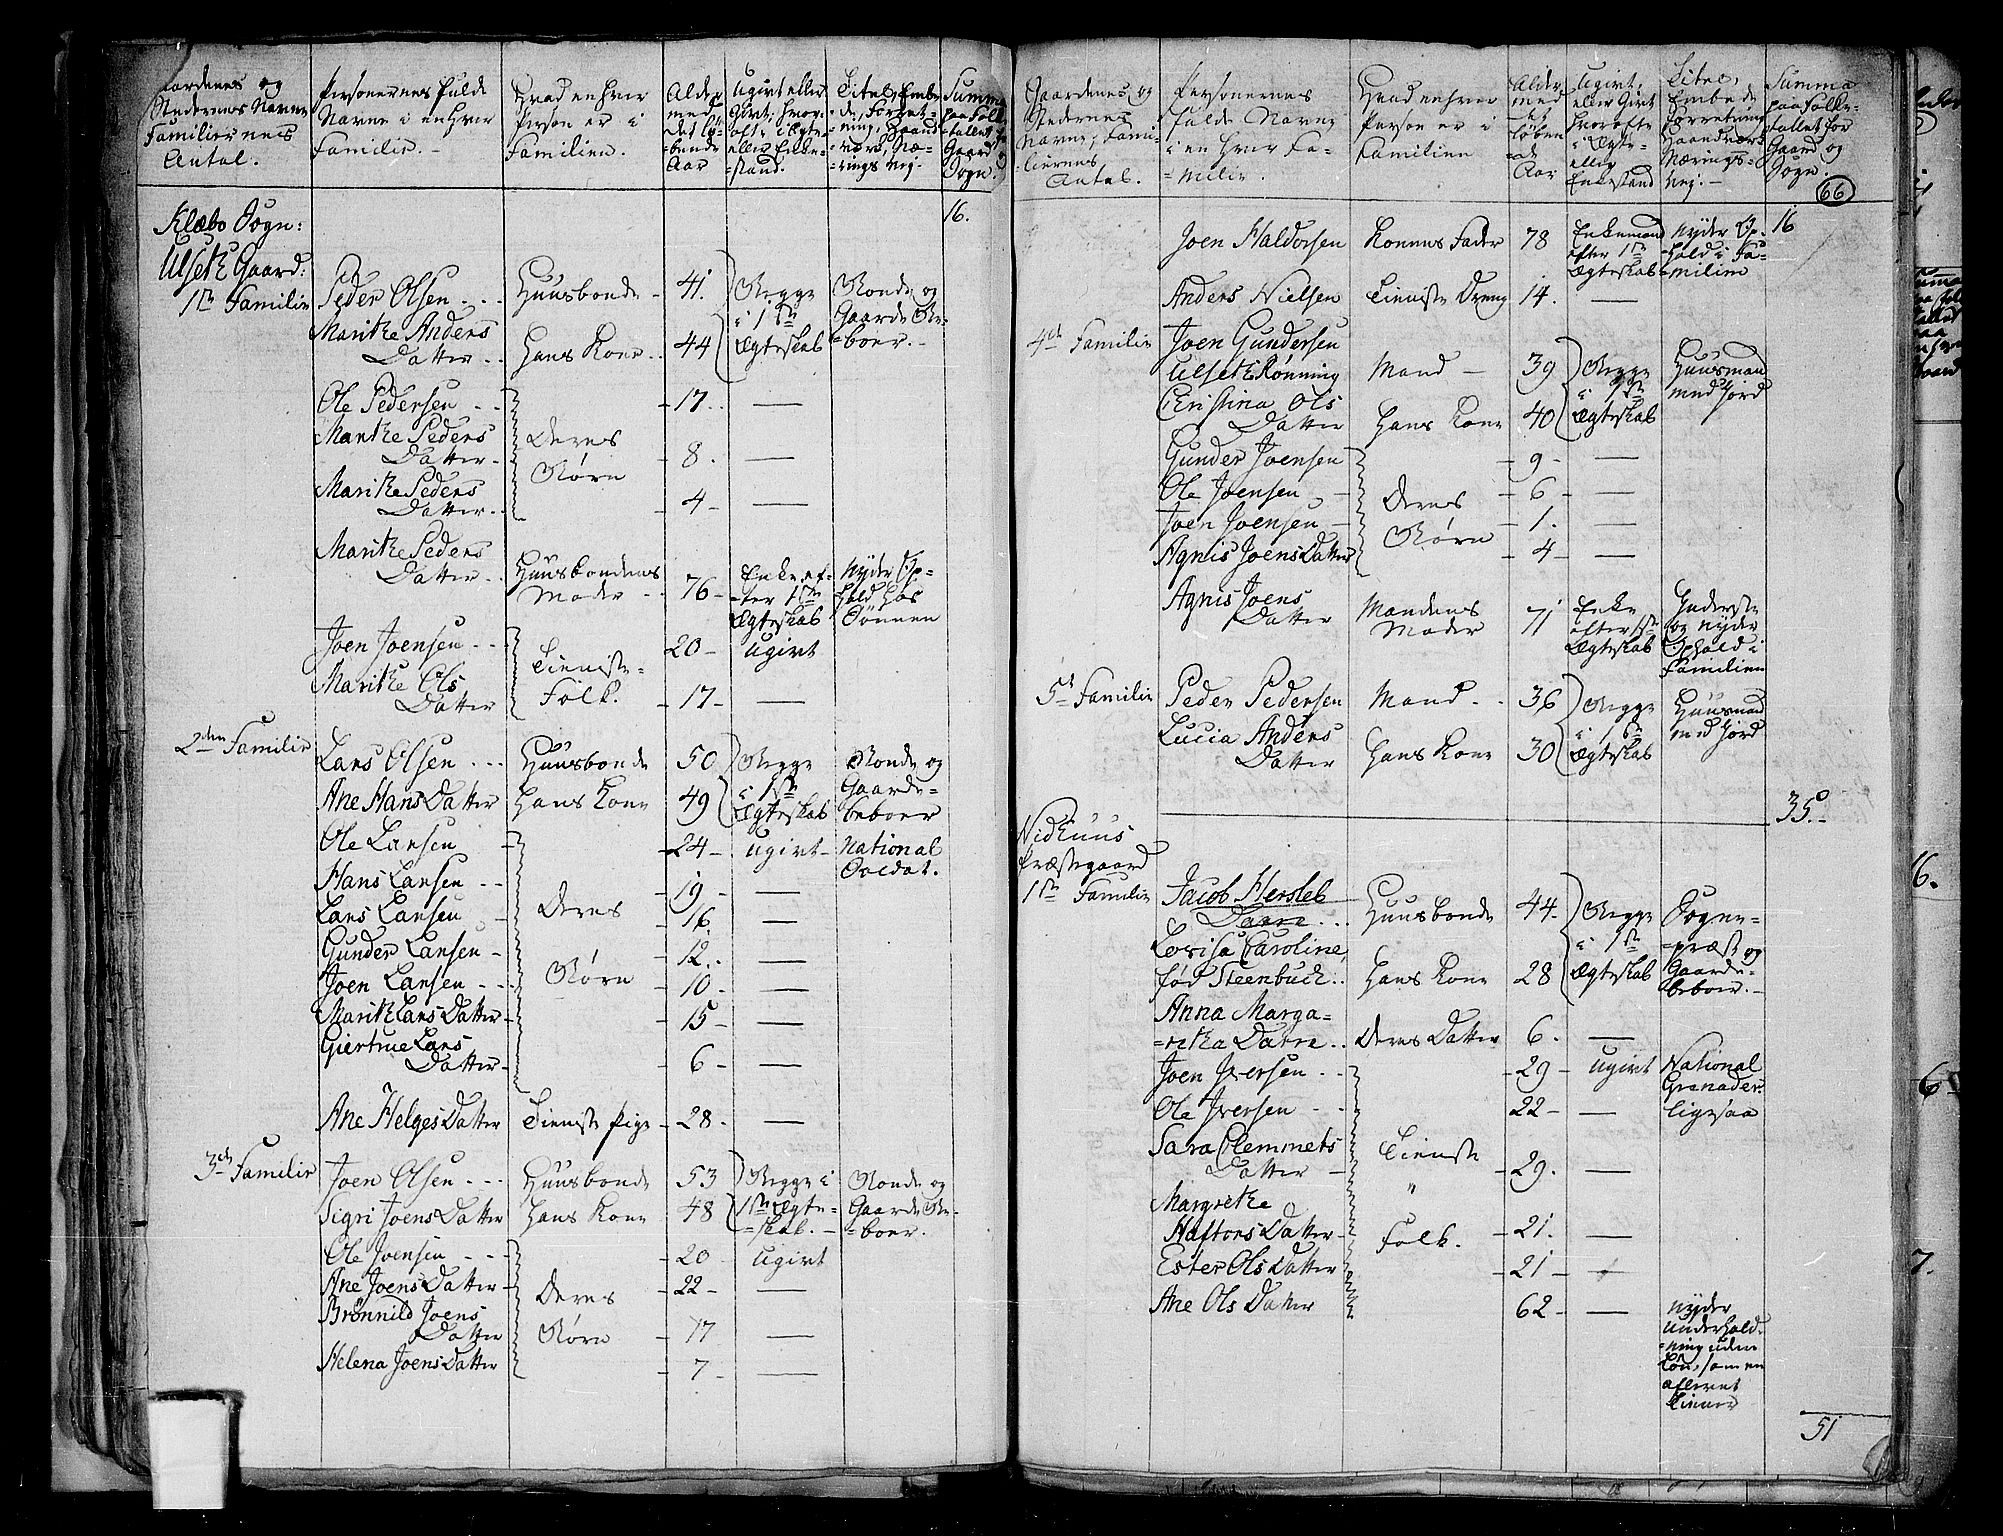 Gaardenes og
Stedernes Navne
Familiernes
Antal.
Personernes fulde
Navne i enhver
Familie.
Hvad enhver
Person er i
Familien.
Alder
med
det lø-
bende
Aar
Ugivt eller
Givt, hvor
ofte i Egte
eller Enke-
stand.
Titel, Embe
de, Forret-
ning, Haand
værk, Næ-
rings Vej.
Summa
paa Folke
tallet for
Gaard og
Sogn.
Klæbo Sogn:
16.
Ulseth Gaard:
1ste Familie Peder Olsen Huusbonde 41. Begge i 1ste Ægteskab Bonde og Gaarde Beboer
Marithe Anders Datter Hans Kone 44
Ole Pedersen Deres Børn 17. —
Marithe Peders Datter 8. —
Marithe Peders Datter 4 —
Marithe Peders Datter Huusbondens Moder 76 Enke efter 1ste Ægteskab Nyder Ophold hos Sønnen
Joen Joensen Tieniste Folk. 20 Ugivt
Marithe Ols Datter 17 —
2den Familie Lars Olsen Huusbonde 50 Begge i 1ste Ægteskab Bonde og Gaardebeboer
Ane Hans Datter Hans Kone 49
Ole Larsen Deres Børn 24 ugivt National Soldat.
Hans Larsen 19 —
Lars Larsen 16. —
Gunder Larsen 12. —
Joen Larsen 10 —
Marith Lars Datter 15 —
Giertrue Lars Datter 6 —
Ane Helges Datter Tieniste Pige 28 —
3die Familie Joen Olsen Huusbonde 53 Begge i 1ste Ægteskab. Bonde og Gaarde Beboer.
Sigri Joens Datter Hans Kone 48
Ole Joensen Deres Børn 20 Ugivt
Ane Joens Datter 22 —
Brønnild Joens Datter 17 —
Helena Joens Datter 7 —
Gaardenes og
Stedernes
Navne, Fami-
liernes
Antal.
Personernes
fulde Navne
i en hver Fa-
milie.
Hvad enhver
Person er i
Familien
Alder
med
det
løben
de
Aar
Ugivt,
eller Givt
hvor ofte
i Ægte-
eller
Enkestand
Titel,
Embede
Forretning
Haandværk
Nærings-
Vej.
Summa
paa Folke-
tallet for
Gaard og
Sogn.
66
Joen Haldorsen Konens Fader 78 Enkemand efter 1ste Ægteskab Nyder Ophold i Familien 16
Anders Nielsen Tieniste Dreng 14. —
4de Familie Joen Gundersen Ulseth Rønning Mand 39 Begge i 1ste Ægteskab Huusmand med Jord
Christina Ols Datter Hans Kone 40
Gunder Joensen Deres Børn 9 —
Ole Joensen 6 —
Joen Joensen 1. —
Agnis Joens Datter 4 —
Agnis Joens Datter Mandens Moder 71 Enke efter 1ste Ægteskab Inderste og nyder Ophold i Familien
5te Familie Peder Pedersen Mand 36 Begge i 1ste Ægteskab Huusmand med Jord
Lucia Anders Datter Hans Kone 30
35.
Nidhuus
Præstegaard
1ste Familie Jacob Hersleb Darre Huusbonde 44. Begge i 1ste Ægteskab Sognepræst og Gaardebeboer.
Lovisa Caroline, fød Steenbuck Hans Kone 28
Anna Margaretha Darre Deres Datter 6. —
Joen Iversen Tieniste Folk. 29 Ugivt National Grenader
Ole Iversen 22 — ligesaa
Sara Clemmets Datter 29. —
Margrethe Haftors Datter 21. —
Ester Ols Datter 21 —
Ane Ols Datter 62 — nyder underholdning uden Løn, som en aflevet Tiener
51